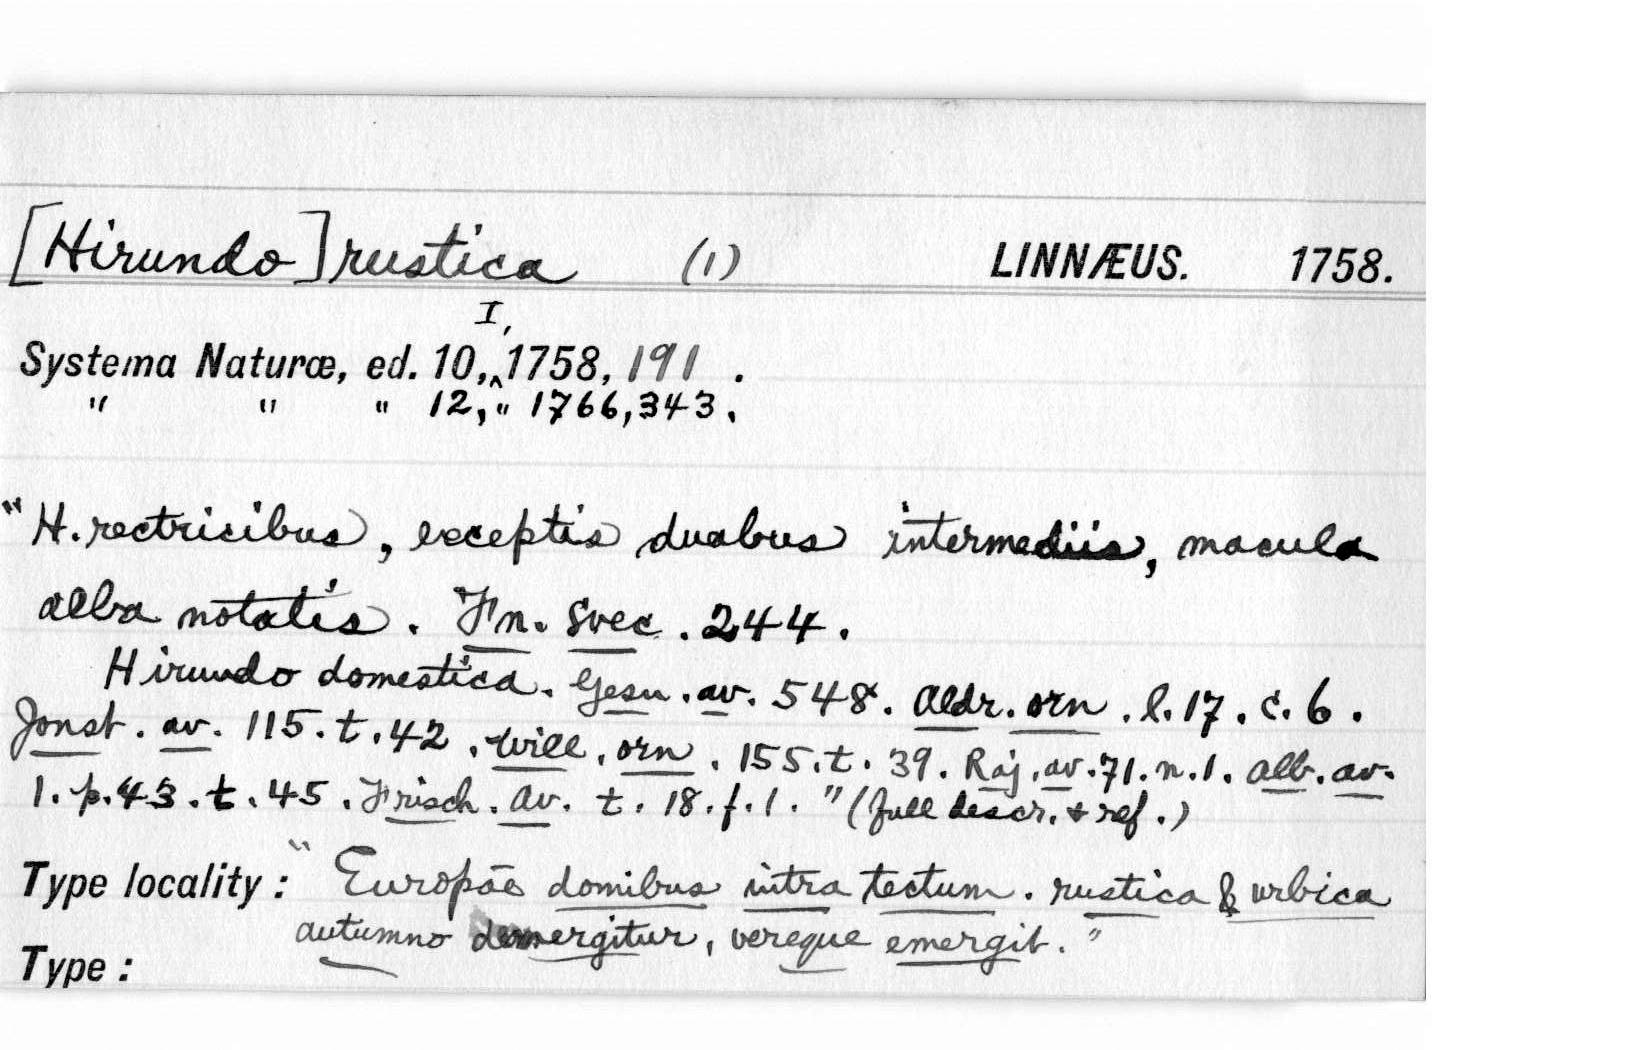 [Hirundo] rustica (1) LINNÆUS. 1758.
I,
Systema Naturæ, ed. 10,^1758, 191 .
" " " 12, " 1766, 343.
"H. rectricibus, exceptis duabus intermediis, macula
alba notatis. Fn. Svec. 244.
Hirundo domestica. Gesn. av. 548. Aldr. orn. l. 17. c. 6.
Jonst. av. 115. t. 42. Will. orn. 155. t. 39. Raj. av. 71. n. 1. Alb. av.
1. p. 43. t. 45. Frisch. Av. t. 18. f. 1. " (full descr. & ref.)
Type locality: "Europae domibus intra tectum. rustica & urbica
autumno demergitur, vereque emergit."
Type: